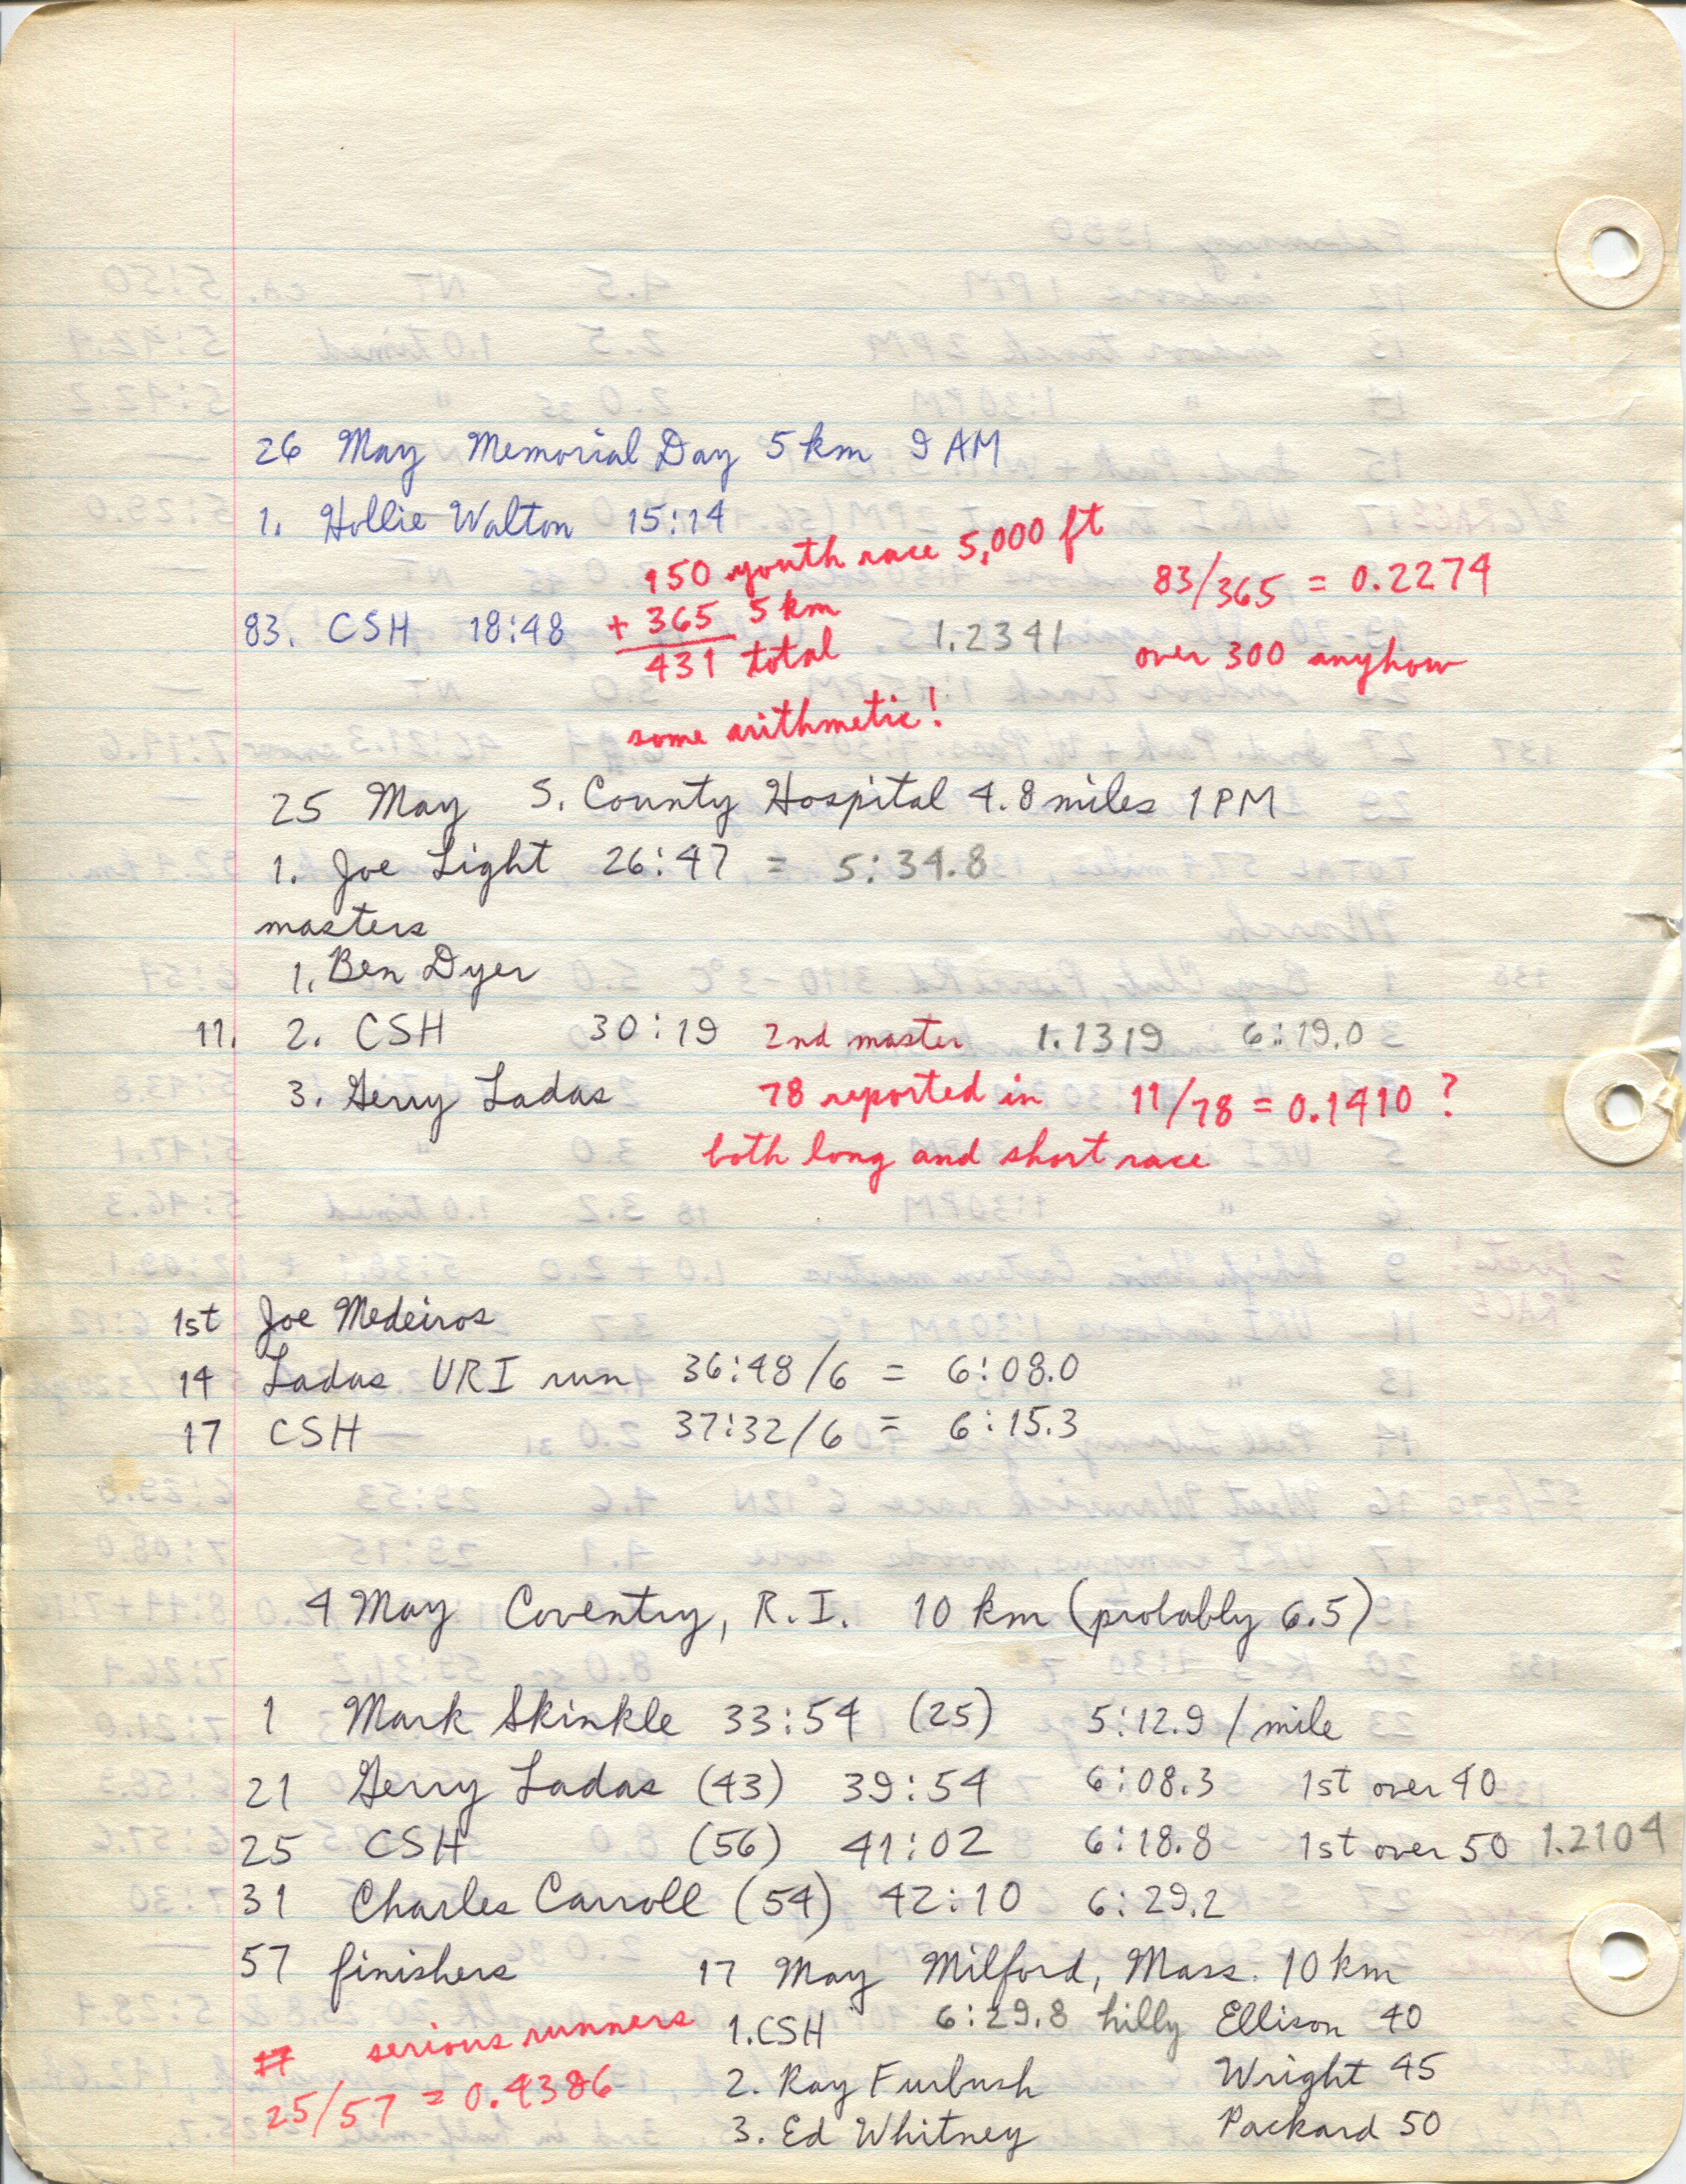 26 May Memorial Day 5 km 9 AM
1. Hollie Walton 15:14
150 youth race 5,000 ft
83/365 = 0.2274
83. CSH 18:48 + 365 5 km 1.2341
431 total
over 300 anyhow
some arithmetic!
25 May S. County Hospital 4.8 miles 1 PM
1. Joe Light 26:47 = 5:34.8
masters
1. Ben Dyer
11. 2. CSH 30:19 2nd master 1.1319 6:19.0
3. Gerry Ladas 78 reported in 11/78 = 0.1410 ?
both long and short race
1st Joe Medeiros
14 Ladas URI run 36:48/6 = 6:08.0
17 CSH — 37:32/6 = 6:15.3
4 May Coventry, R.I. 10 km (probably 6.5)
1 Mark Skinkle 33:54 (25) 5:12.9 / mile
21 Gerry Ladas (43) 39:54 6:08.3 1st over 40
25 CSH (56) 41:02 6:18.8 1st over 50 1.2104
31 Charles Carroll (54) 42:10 6:29.2
57 finishers 17 May Milford, Mass. 10 km
serious runners 1. CSH 6:29.8 hilly Ellison 40
25/57 = 0.4386 2. Ray Furbush Wright 45
3. Ed Whitney Packard 50